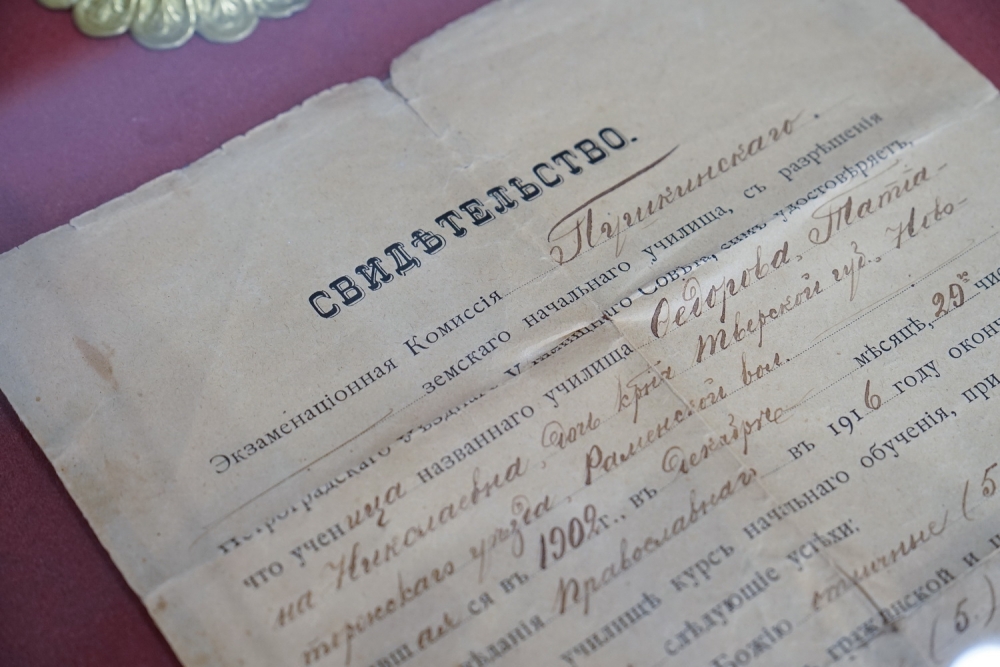 СВИДѢТЕЛЬСТВО.
Экзаменаціонная Комиссія Пушкинскаго.
земскаго начальнаго училища, съ разрѣшенія
Петроградскаго Уѣзднаго Училищнаго Совѣта, симъ удостовѣряетъ,
что ученица названнаго училища Ѳедорова, Татіа-
на Николаевна, дочь кр. Тверской губ., Ново-
торжскаго уѣзда, Раменской вол.
ся въ 1902 г., въ Декабрѣ мѣсяцѣ, 29
Православнаго въ 1916 году
училищѣ курсъ начальнаго обученія, при
слѣдующіе успѣхи:
Божію отличные (5
гражданской и
(5.)